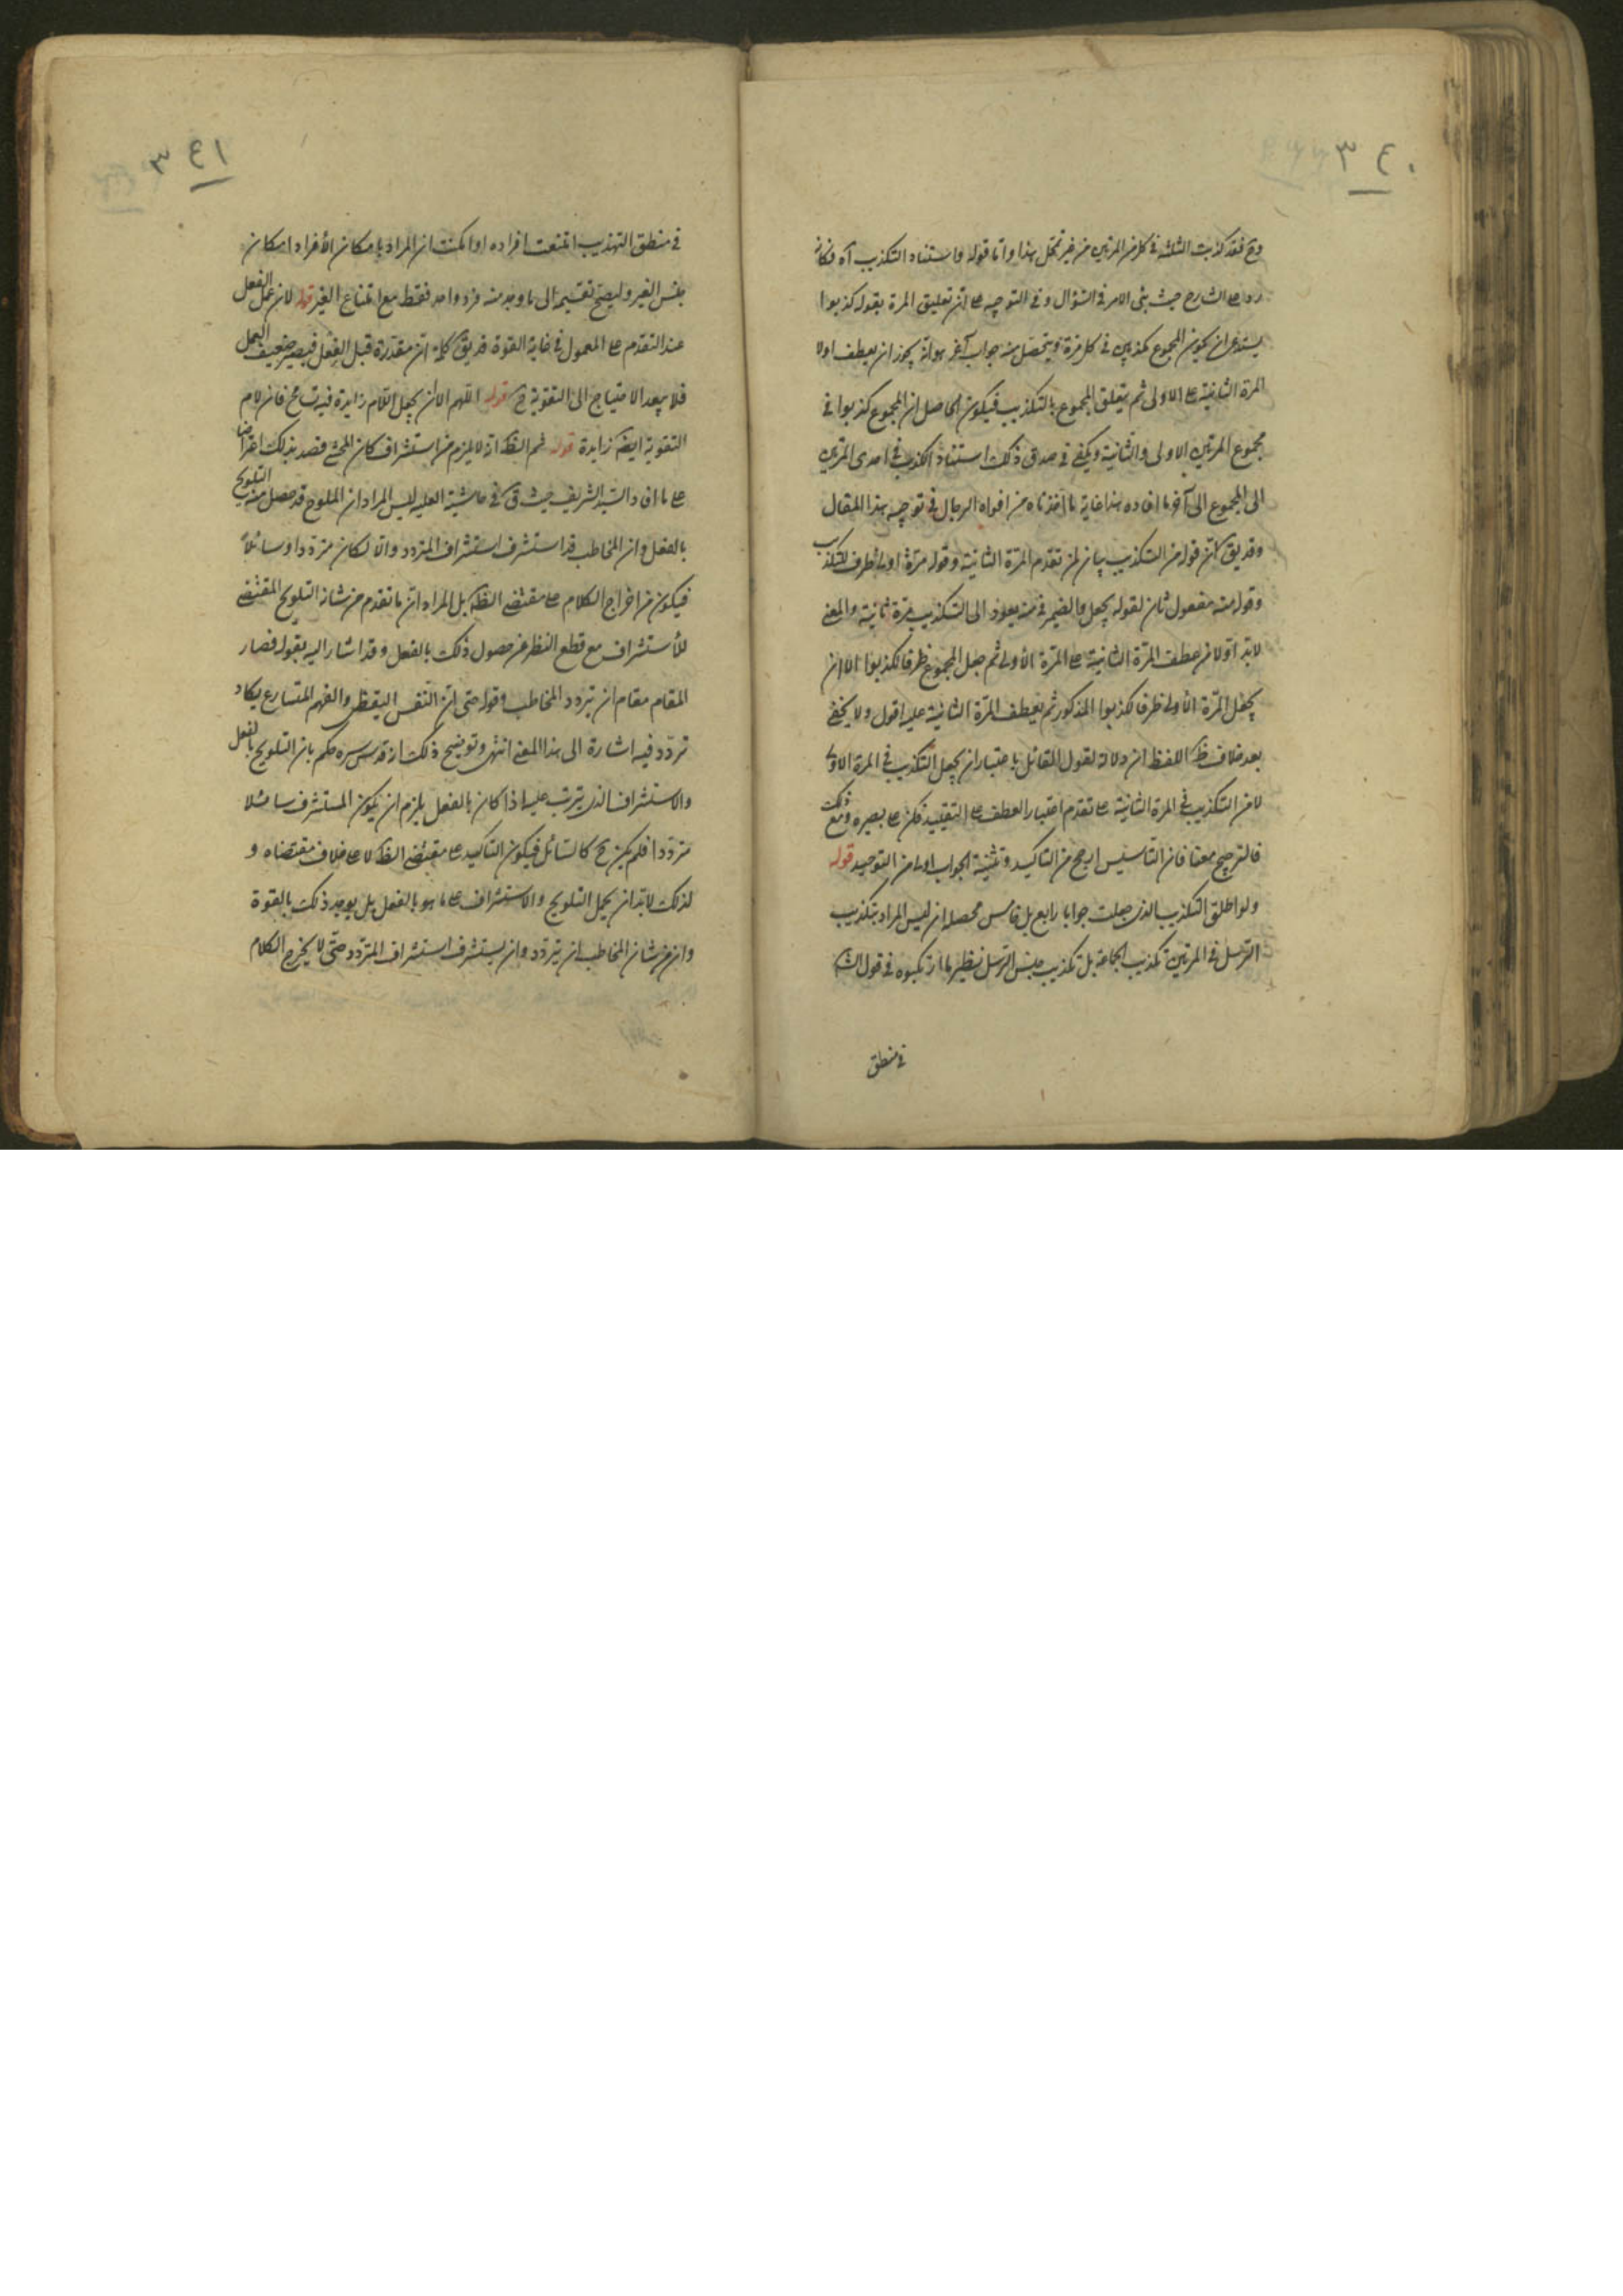 ٣٤٠
وح فقد كذبت الثلثة في كل من المرتين من غير تمحل هذا واما قوله واستناد التكذيب آه فكانه
رد على الشارح حيث بنى الامر في السؤال وفي التوجيه على ان تعليق المرة بقوله كذبوا
يستدعي ان يكون المجموع مكذبين في كل مرة ويتحصل منه جواب آخر هو انه يجوز ان يعطف اولا
المرة الثانية على الاولى ثم يتعلق المجموع بالتكذيب فيكون الحاصل ان المجموع كذبوا في
مجموع المرتين الاولى والثانية ويكفي في صدق ذلك استناد الكذب في احدى المرتين
الى المجموع الى آخر ما افاده هذا غاية ما أخذناه من افواه الرجال في توجيه هذا المقال
وقد يق ان قوله من التكذيب بيان لمن تقدم المرة الثانية وقوله مرة اولى ظرف لتكذيب
وقوله منه مفعول ثان لقوله يجعل والضمير في منه يعود الى التكذيب مرة ثانية والمعنى
لابد اولا من عطف المرة الثانية على المرة الأولى ثم جعل المجموع ظرفا لكذبوا الا ان
يجعل المرة الأولى ظرفا لكذبوا المذكور ثم يعطف المرة الثانية عليه اقول ولا يخفى
بعد خلاف ظ اللفظ ان دلالة لقول القائل باختيار ان يجعل التكذيب في المرة الاولى
لا من التكذيب في المرة الثانية على تقدم اعتبار العطف على التقييد فكن على بصيره ومع ذلك
فالترجيح معنا فان التأسيس ارجح من التاكيد وتثنية الجواب اولى من التوحيد قوله
ولو اطلق التكذيب الذي جعلت جوابا رابع بل خامس محصله ان ليس المراد بتكذيب
الرسل في المرتين تكذيب الجماعة بل تكذيب جنس الرسل نظير ما ارتكبوه في قول الش
في منطق
٣٤١
في منطق التهذيب امتنعت افراده او امكنت ان المراد بامكان الأفراد امكان
جنس الغير وليصح تقسيمه الى ما وجد منه فرد واحد فقط مع امتناع الغير قوله لان عمل الفعل
عند التقدم على المعمول في غاية القوة قد يق كلمة ان مقدرة قبل الفعل فيصير ضعيف العمل
فلا يبعد الاحتياج الى التقوية ح قوله اللهم الا ان يجعل اللام زايدة فيه تسامح فان لام
التقوية ايضا زايدة قوله ثم الظ انه لا يلزم من استشراف كان المحشي قصد بذلك اعتراضا
على ما افاد السيد الشريف حيث ق في حاشية العليه ليس المراد ان الملوح قد حصل منه التلويح
بالفعل وان المخاطب قد استشرف استشراف المتردد والا لكان مترددا وسائلا
فيكون من اخراج الكلام على مقتضى الظ بل المراد ان ما تقدم من شانه التلويح المقتضي
للأستشراف مع قطع النظر عن حصول ذلك بالفعل وقد اشار اليه بقوله فصار
المقام مقام ان يتردد المخاطب وقوله حتى ان النفس اليقظى والفهم المتسارع يكاد
تردد فيه اشارة الى هذا المعنى انتهى وتوضيح ذلك انه قدس سره حكم بان التلويح بالفعل
والاستشراف الذي يترتب عليه اذا كان بالفعل يلزم ان يكون المستشرف سائلا
مترددا فلم يكن ح كالسائل فيكون التاكيد على مقتضى الظ لا على خلاف مقتضاه و
لذلك لابد ان يحمل التلويح والاستشراف على ما هو بالفعل بل يوجد ذلك بالقوة
وان من شان المخاطب ان يتردد وان يستشرف استشراف المتردد حتى لا يخرج الكلام